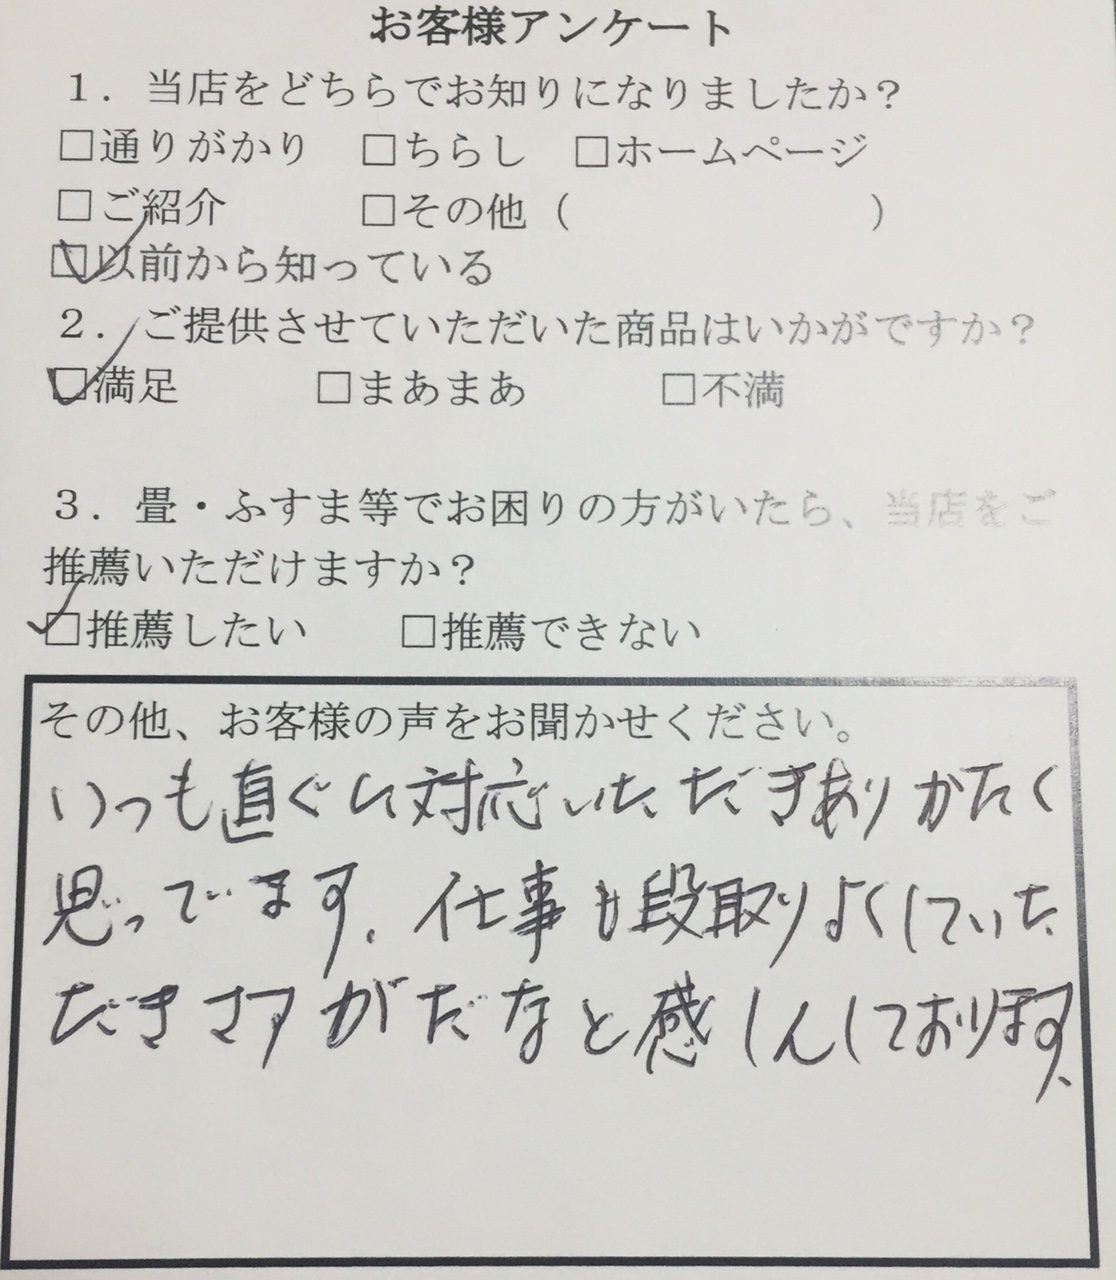 お客様アンケート
１．当店をどちらでお知りになりましたか？
□通りがかり　□ちらし　□ホームページ
□ご紹介　□その他（　　　　　　　）
☑以前から知っている
２．ご提供させていただいた商品はいかがですか？
☑満足　□まあまあ　□不満
３．畳・ふすま等でお困りの方がいたら、当店をご
推薦いただけますか？
☑推薦したい　□推薦できない
その他、お客様の声をお聞かせください。
いつも直ぐに対応いただきありがたく
思ってます、仕事も段取りよくしていた
だきさすがだなと感しんしております、